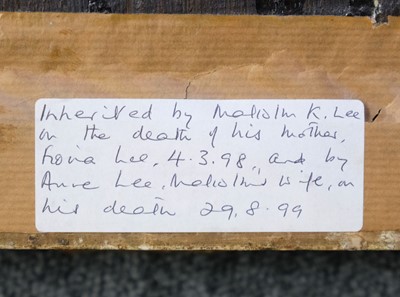 Inherited by Malcolm K. Lee
on the death of his mother,
Fiona Lee, 4.3.98, and by
Anne Lee, Malcolm's wife, on
his death 29.8.99